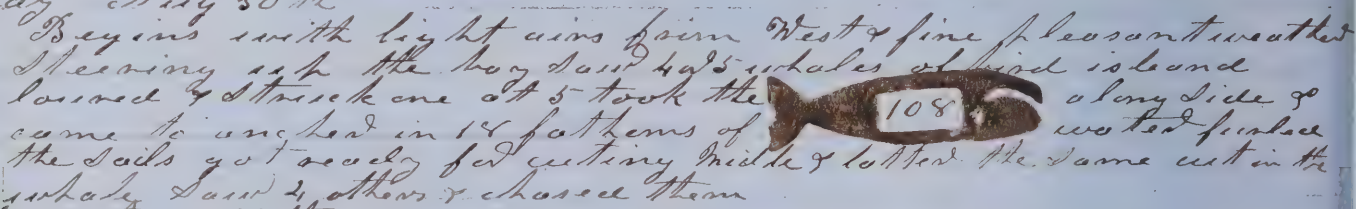 Begins with light airs from West & fine pleasant weather
Steering up the bay Saw 4 or 5 whales of bird island
lowred & Struck one at 5 took the 108 along Side &
came to ancher in 18 fathoms of water furled
the Sails got ready for cuting Middle & latter the Same cut in the
whale Saw 4 others & chased them